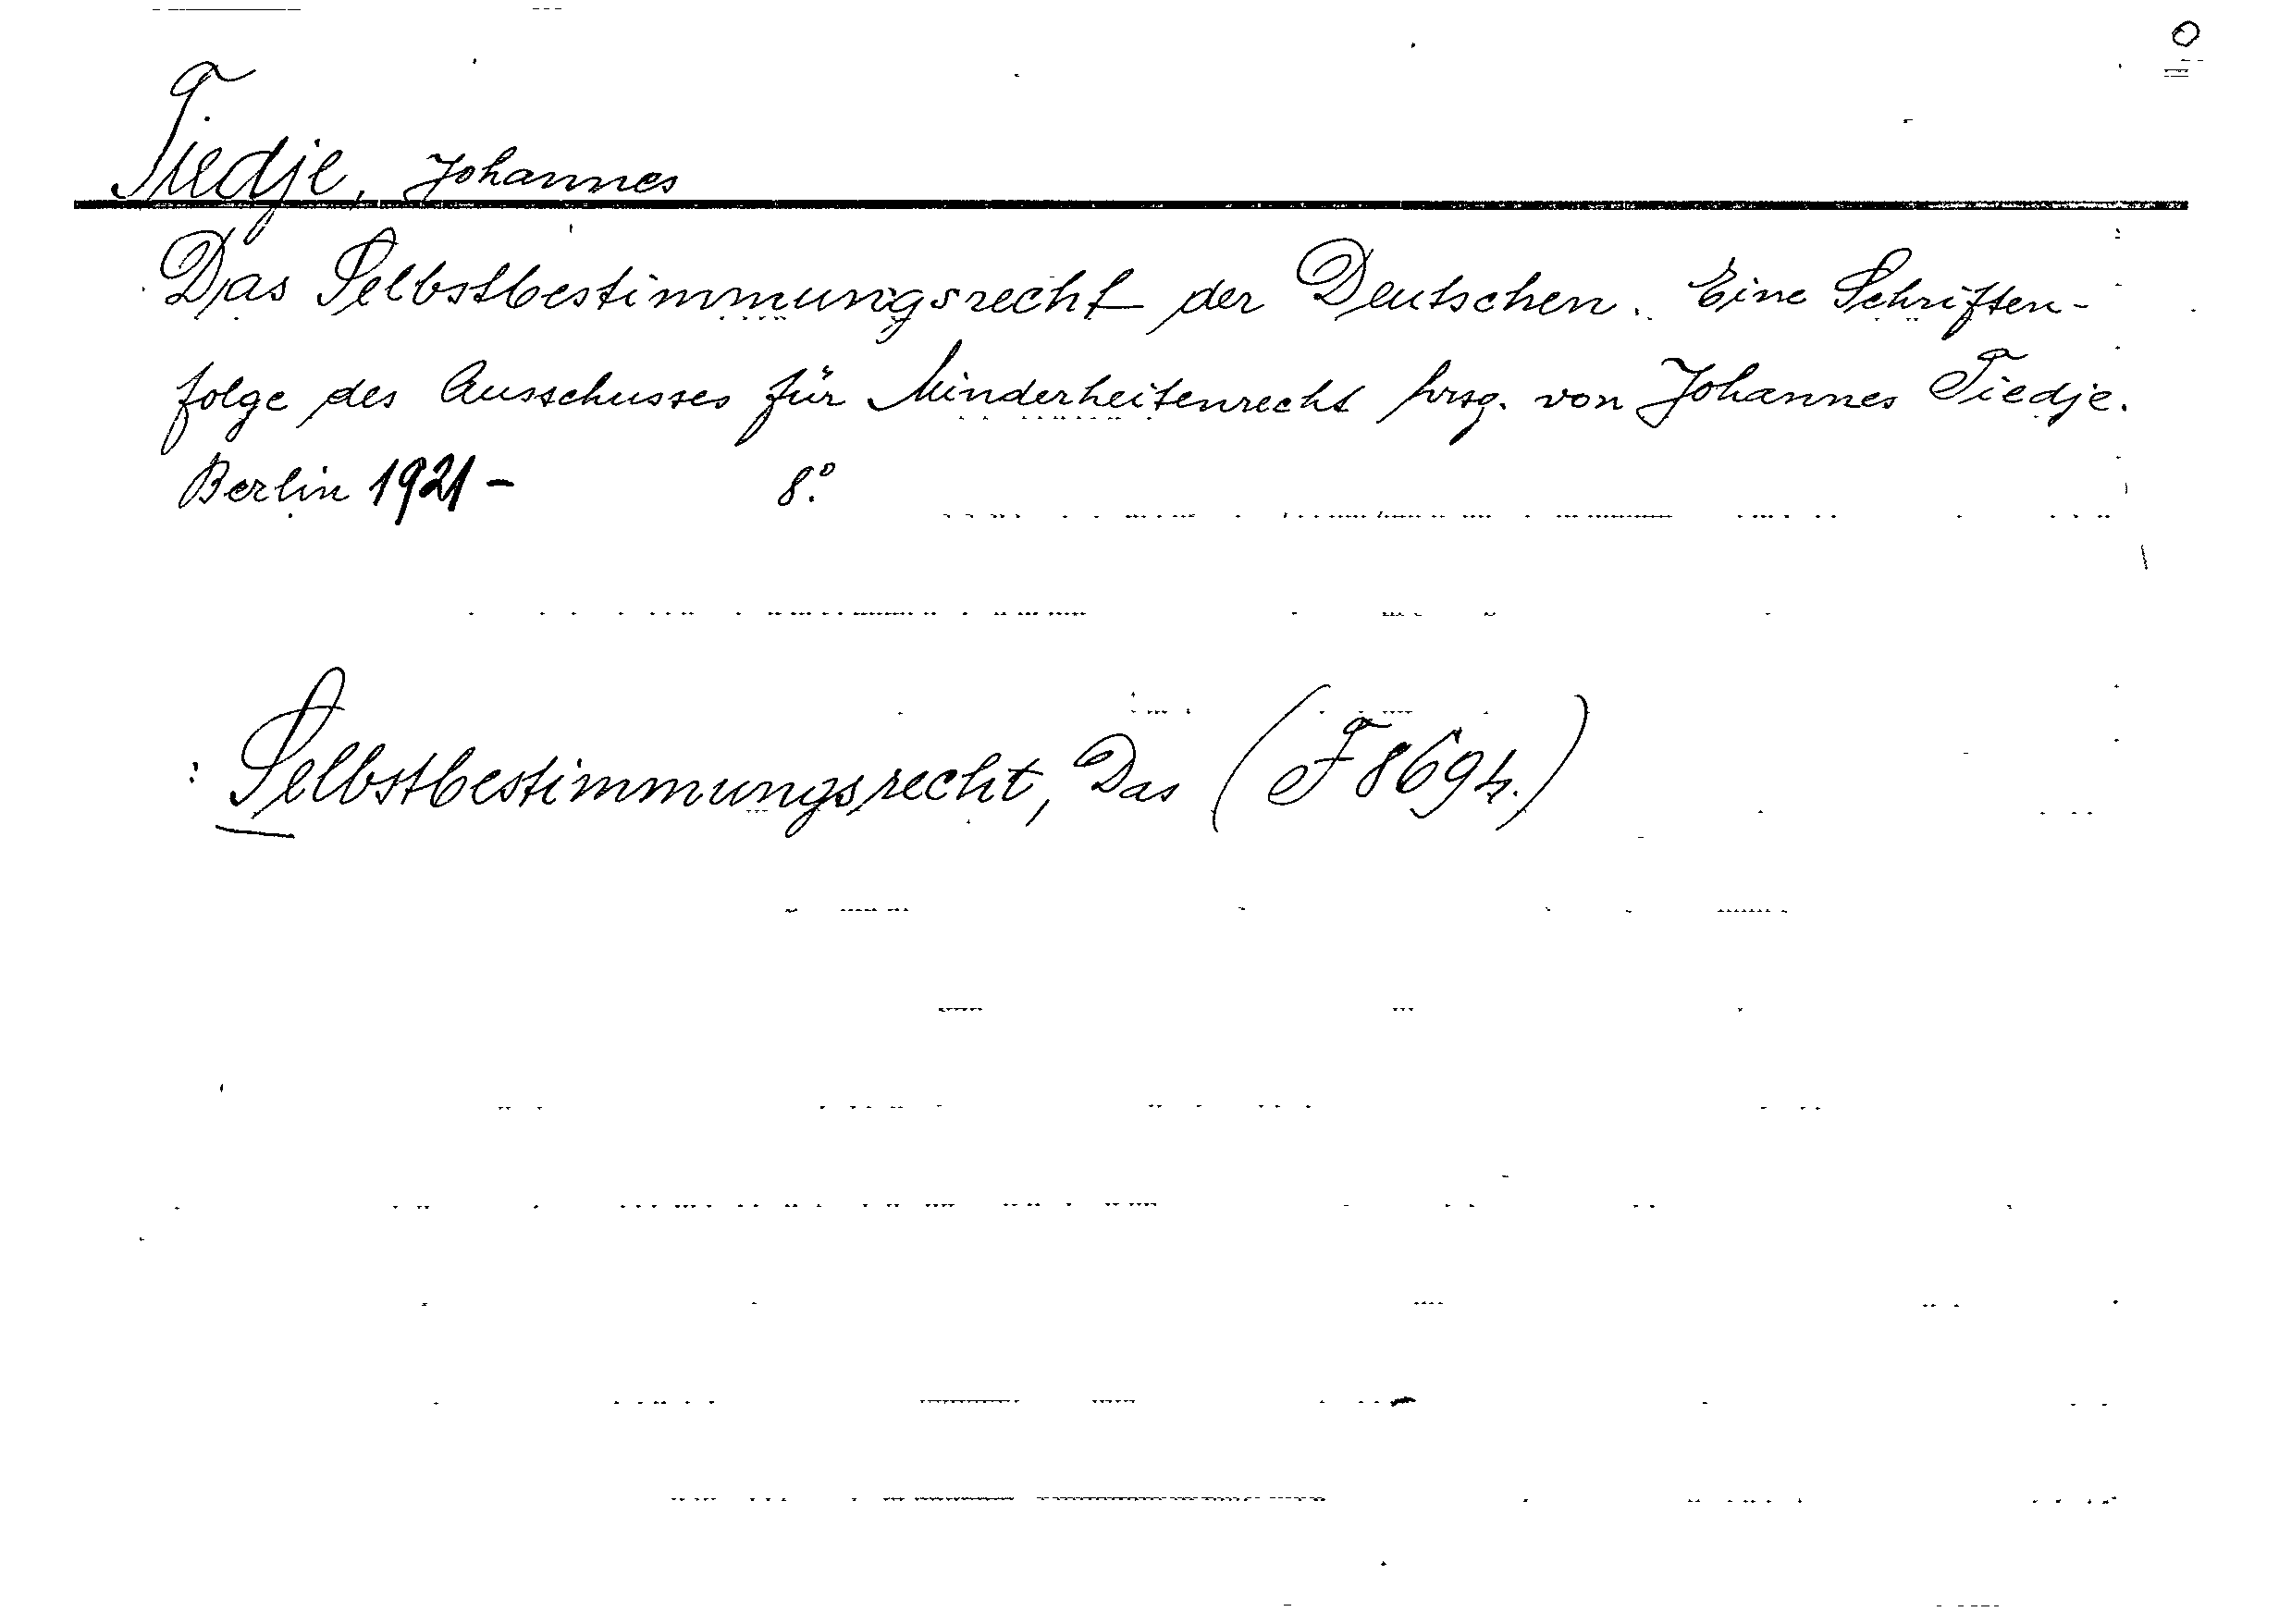 O
Tiedje, Johannes
Das Selbstbestimmungsrecht der Deutschen. Eine Schriften-
folge des Ausschusses für Minderheitenrecht hrsg. von Johannes Tiedje.
Berlin 1921- 8°.
: Selbstbestimmungsrecht, Das (F 8694.)